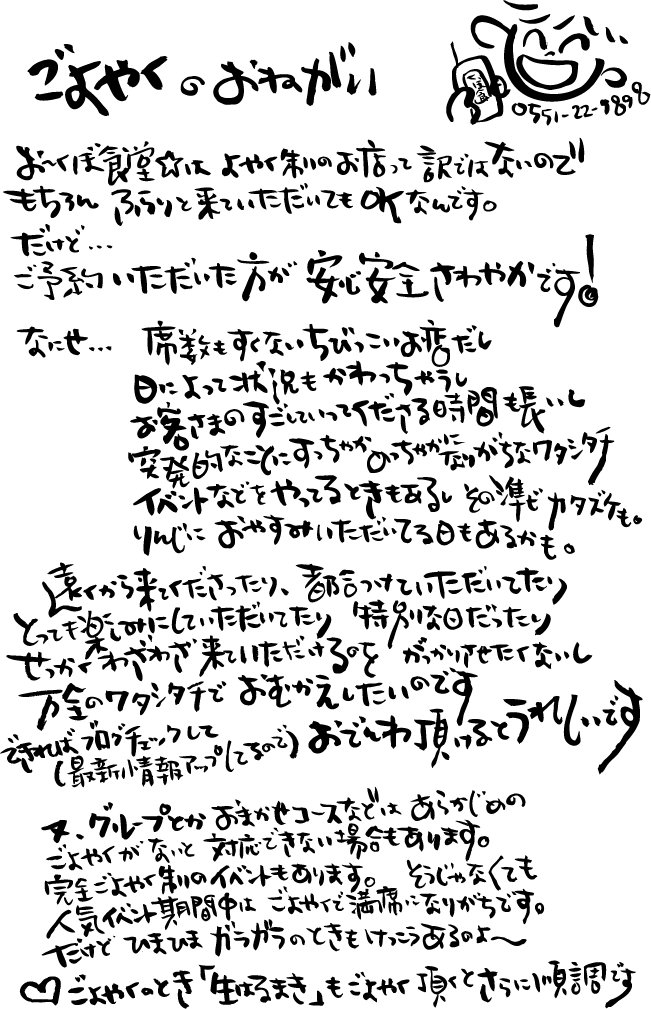 ごよやくのおねがい
ご予約
0551-22-9898
お〜くぼ食堂☆は よやく制のお店って訳ではないので
もちろん ふらりと来ていただいてもOKなんです。
だけど…
ご予約いただいた方が 安心安全さわやかです!
なにせ… 席数もすくないちびっこいお店だし
日によって状況もかわっちゃうし
お客さまのすごしていってくださる時間も長いし
突発的なことにすっちゃかめっちゃかになりがちなワタシタチ
イベントなどをやってるときもあるし その準ビカタズケも。
りんじに おやすみいただいてる日もあるかも。
遠くから来てくださったり、都合つけていただいてたり
とっても楽しみにしていただいてたり 特別な日だったり
せっかくわざわざ来ていただけるのを がっかりさせたくないし
万全のワタシタチで おむかえしたいのです
できればブログチェックして
(最新情報アップしてるので) おでんわ頂けるとうれしいです
又、グループとか おまかせコースなどは あらかじめの
ごよやくがないと 対応できない場合もあります。
完全ごよやく制のイベントもあります。 そうじゃなくても
人気イベント期間中は ごよやくで満席になりがちです。
だけど ひまひま ガラガラのときもけっこうあるのよ〜
♡ごよやくのとき「生はるまき」もごよやく頂くとさらに順調です